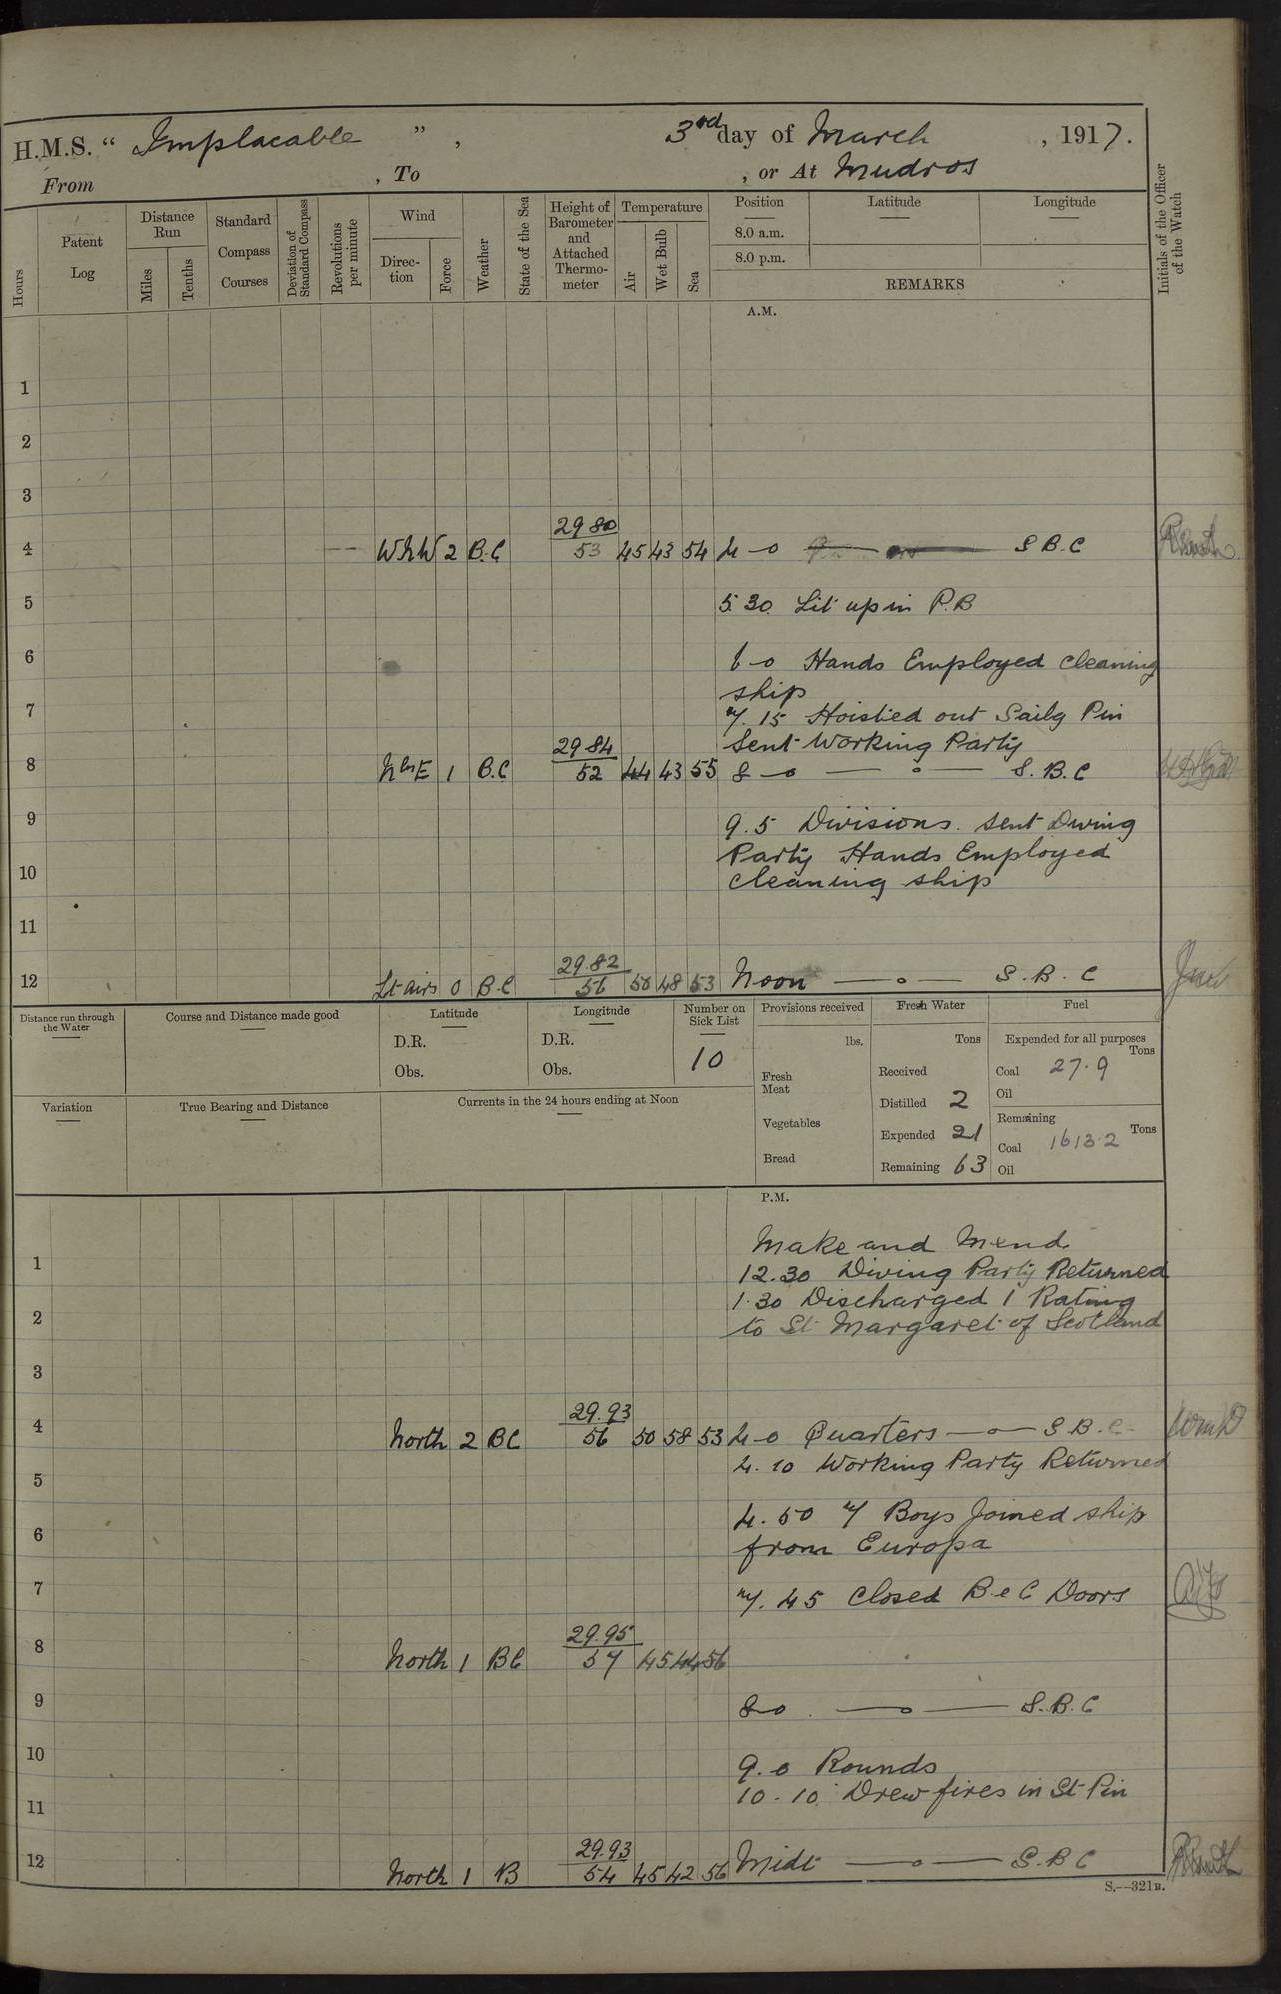 H.M.S. “ Implacable ” , 3rd day of March , 1917.
From , To , or At Mudros
Hours
Patent Log
Distance Run
Miles
Tenths
Standard Compass Courses
Deviation of Standard Compass
Revolutions per minute
Wind
Direction
Force
Weather
State of the Sea
Height of Barometer and Attached Thermometer
Temperature
Air
Wet Bulb
Sea
Position
8.0 a.m.
8.0 p.m.
Latitude
Longitude
REMARKS
Initials of the Officer of the Watch
A.M.
1
2
3
29 80
4 WNW 2 B.C 53 45 43 54 4-0 S B.C
5 5.30 Lit up in P.B
6 6-0 Hands Employed cleaning
ship
7 7.15 Hoisted out Sailg Pin
29 84 Sent Working Party
8 NbyE 1 B.C 52 44 43 55 8-0 — o — S. B. C
9 9.5 Divisions. sent Diving
Party Hands Employed
10 cleaning ship
11
29.82
12 Lt airs 0 B.C 56 50 48 53 Noon — o — S. B. C
Distance run through the Water
Course and Distance made good
Latitude
D.R.
Obs.
Longitude
D.R.
Obs.
Number on Sick List
10
Provisions received
lbs.
Fresh Meat
Vegetables
Bread
Fresh Water
Tons
Received
Distilled 2
Expended 21
Remaining 63
Fuel
Expended for all purposes
Tons
Coal 27.9
Oil
Remaining
Tons
Coal 1613.2
Oil
Variation
True Bearing and Distance
Currents in the 24 hours ending at Noon
P.M.
Make and Mend
1 12.30 Diving Party Returned
1.30 Discharged 1 Rating
2 to St Margaret of Scotland
3
29.93
4 North 2 BC 56 50 58 53 4-0 Quarters — o — S B.C
4.10 Working Party Returned
5
4.50 7 Boys Joined ship
6 from Europa
7 7.45 Closed B & C Doors
29.95
8 North 1 BC 57 45 44 56
9 8-0 — o — S.B.C
10 9.0 Rounds
10.10 Drew fires in St Pin
11
29.93
12 North 1 B 54 45 42 56 Midt — o — S.B C
S.—321B.